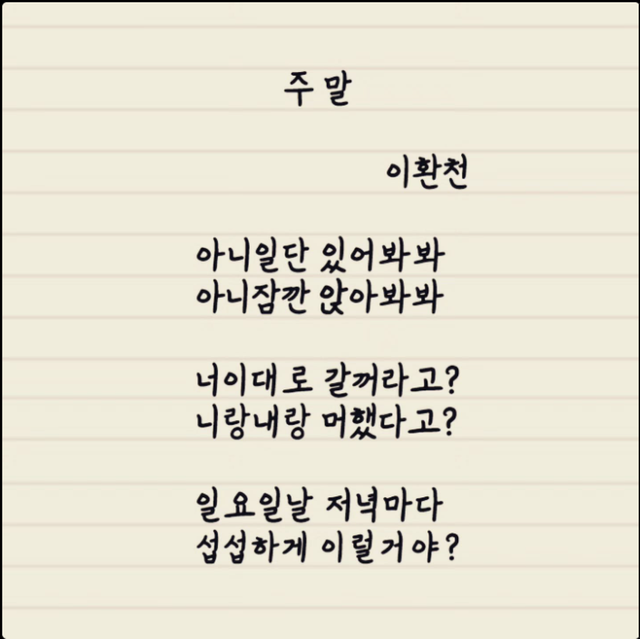 주말
이환천
아니일단 있어봐봐
아니잠깐 앉아봐봐
너이대로 갈꺼라고?
니랑내랑 머했다고?
일요일날 저녁마다
섭섭하게 이럴거야?